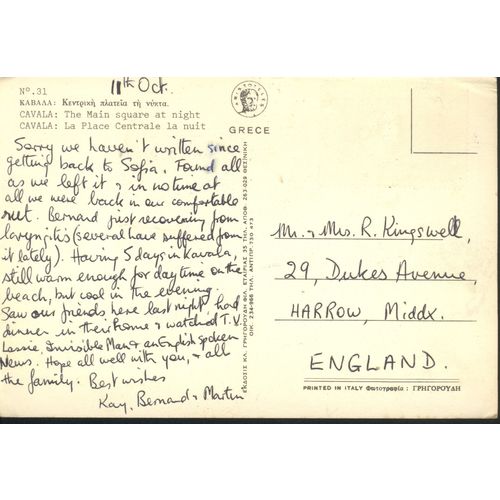 11th Oct.
Nº.31
ΚΑΒΑΛΑ: Κεντρικὴ πλατεῖα τὴ νύκτα.
CAVALA: The Main square at night
CAVALA: La Place Centrale la nuit
GREECE
Sorry we haven't written since
getting back to Sofia. Found all
as we left it & in no time at
all we were back in our comfortable
rut. Bernard just recovering from
laryngitis (several have suffered from
it lately). Having 5 days in Kavala,
still warm enough for day time on the
beach, but cool in the evening.
Saw our friends here last night, had
dinner in their home & watched T.V.
Lassie, Invisible Man & an English spoken
News. Hope all well with you, & all
the family. Best wishes
Kay, Bernard & Martin
ΕΚΔΟΣΙΣ ΚΛ. ΓΡΗΓΟΡΟΥΔΗ ΦΙΛ. ΕΤΑΙΡΙΑΣ 35 ΤΗΛ. ΑΠΟΘ. 263-029 ΘΕΣ/ΝΙΚΗ
ΟΙΚ. 234-966 ΤΗΛ. ΑΝΤΙΠΡ. 230-473
Mr. & Mrs. R. Kingswell,
29, Dukes Avenue,
HARROW, Middx.
ENGLAND.
PRINTED IN ITALY Φωτογραφία : ΓΡΗΓΟΡΟΥΔΗ